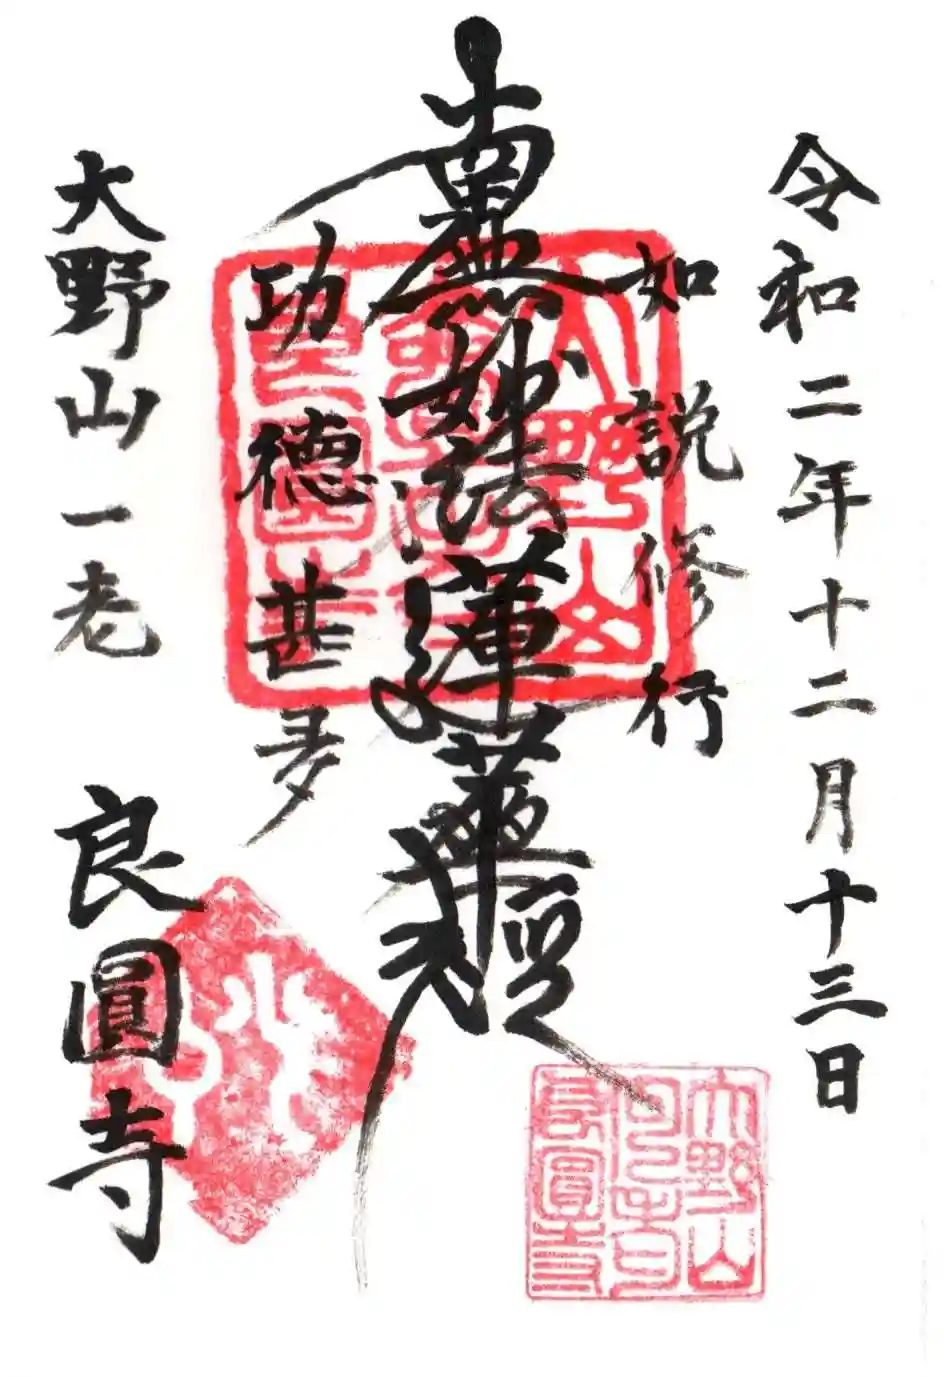 令和二年十二月十三日
如説修行
南無妙法蓮華經
功德甚多
大野山一老
良圓寺
大野山
良圓寺